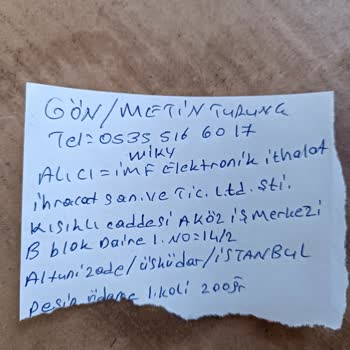 GÖN/METİN TURUNG
Tel=0535 516 60 17
WİKY
ALICI=İMF Elektronik ithalat
ihracat san.ve Tic.Ltd.Şti.
Kısıklı caddesi AKÖZ iş Merkezi
B blok Daire 1.NO=14/2
Altunizade/üsküdar/iSTANBUL
Peşin ödeme 1.koli 200gr